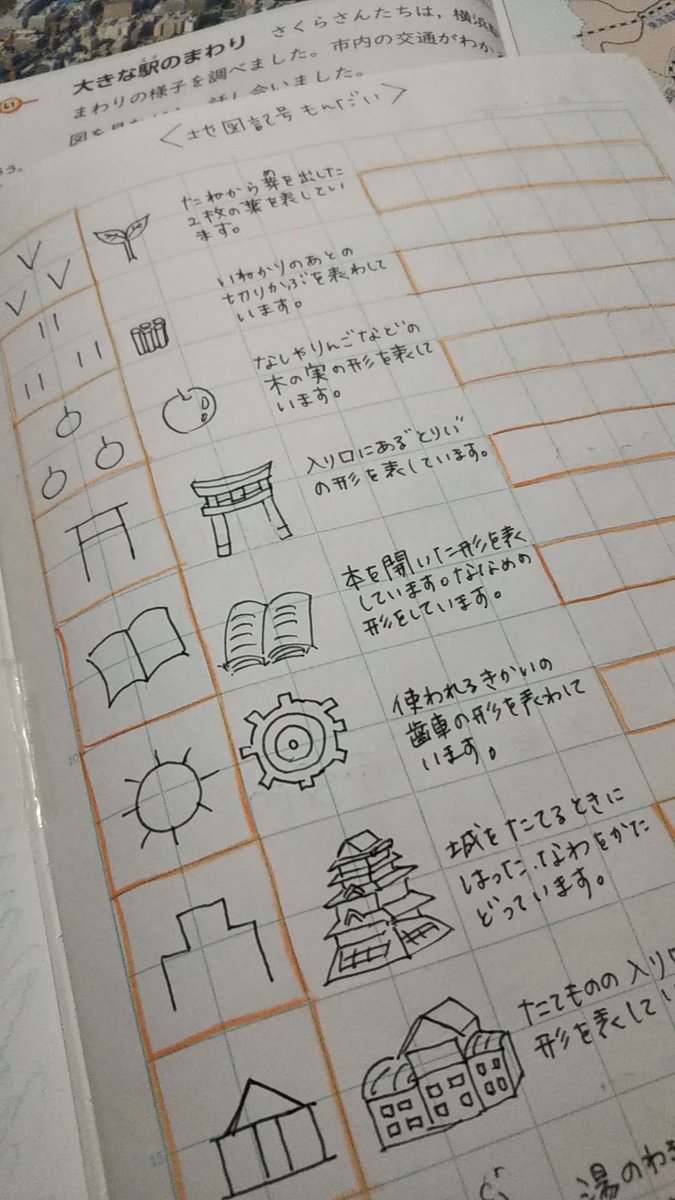 大きな駅のまわり さくらさんたちは，横浜
まわりの様子を調べました。市内の交通がわか
＜地図記号もんだい＞
たねから芽を出した
2枚の葉を表してい
ます。
いねかりのあとの
切りかぶを表わして
います。
なしやりんごなどの
木の実の形を表して
います。
入り口にある"とりい"
の形を表しています。
本を開いた形を表く
しています。ななめの
形をしています。
使われるきかいの
歯車の形を表くわして
います。
城をたてるときに
はった、なわをかた
どっています。
たてものの入り口
形を表くしてい
湯のわき